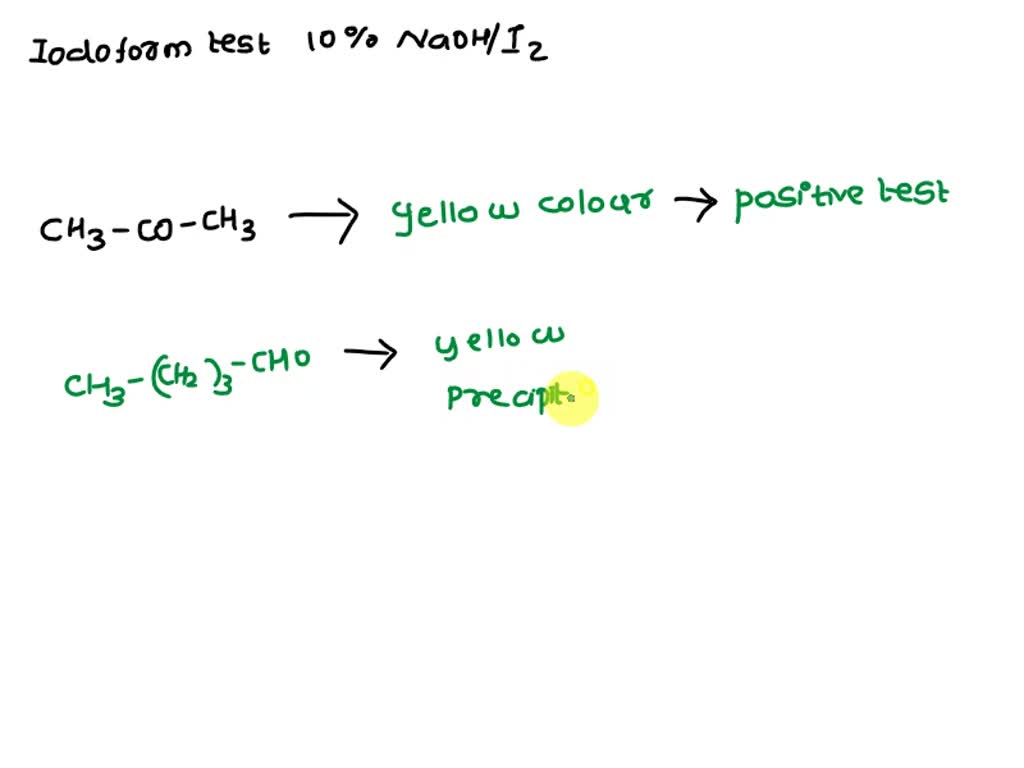 Iodoform test 10% NaOH/I2
CH3-CO-CH3 → yellow colour → positive test
CH3-(CH2)3-CHO → yellow
precipit